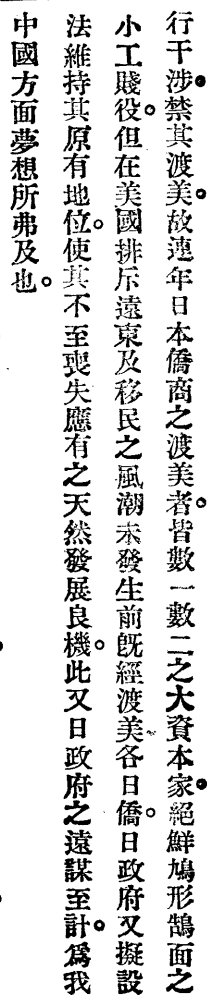 行干涉。禁其渡美。故連年日本僑商之渡美者。皆數一數二之大資本家。絕鮮鳩形鵠面之
小工賤役。但在美國排斥遠東及移民之風潮未發生前既經渡美各日僑。日政府又擬設
法維持其原有地位。使其不至喪失應有之天然發展良機。此又日政府之遠謀至計。爲我
中國方面夢想所弗及也。